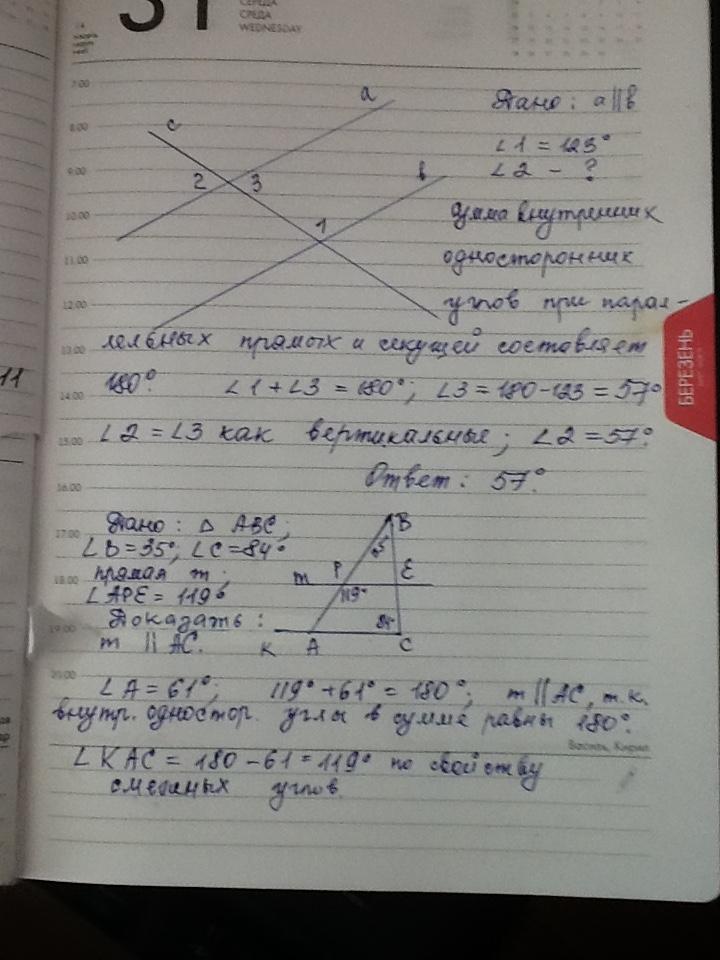 31
СЕРЕДА
СРЕДА
WEDNESDAY
7.00
8.00
9.00
10.00
11.00
12.00
13.00
14.00
15.00
16.00
17.00
18.00
19.00
20.00
11
БЕРЕЗЕНЬ
a
c
в
2
3
1
Дано: a||в
∠1 = 123°
∠2 - ?
Сумма внутренних
односторонних
углов при парал-
лельных прямых и секущей составляет
180°. ∠1+∠3 = 180°; ∠3 = 180-123 = 57°
∠2 = ∠3 как вертикальные; ∠2 = 57°.
Ответ: 57°.
Дано: Δ ABC;
∠B = 35°; ∠C = 84°
прямая m;
∠APE = 119°
Доказать:
m || AC.
B
m
P
E
119°
84°
K
A
C
∠A = 61°; 119° + 61° = 180°; m || AC, т.к.
внутр. одностор. углы в сумме равны 180°.
∠KAC = 180 - 61 = 119° по свойству
смежных углов.